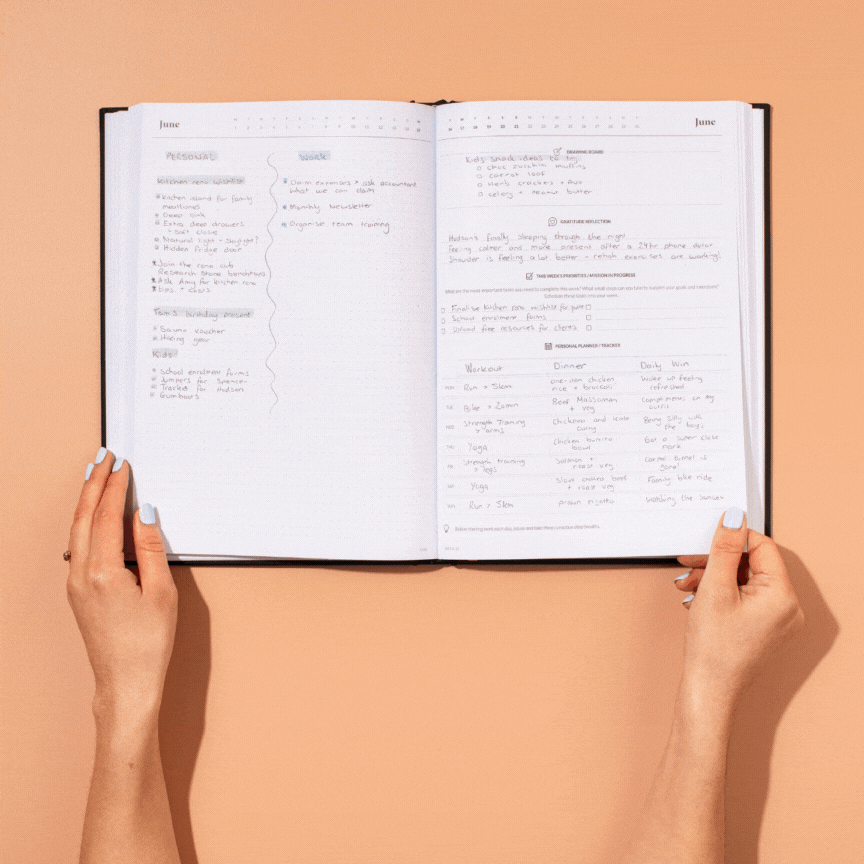 June
PERSONAL
Kitchen reno wishlist
Kitchen island for family
mealtimes
Deep sink
Extra deep drawers
+ soft close
Natural light - skylight?
Hidden fridge door
Join the reno club
Research stone benchtops
Ask Amy for kitchen reno
tips +
Tom's birthday present
Sauna voucher
Hiking gear
Kids
School enrolment forms
Jumpers for Spencer
for Hudson
Gumboots
WORK
Claim expenses + ask accountant
what we can claim
Monthly Newsletter
Organise team training
June
DRAWING BOARD
Kids snack ideas to try
choc zucchini muffins
carrot loaf
Herb crackers +
celery + peanut butter
GRATITUDE REFLECTION
Hudson's finally sleeping through the night
Feeling calmer and more present after a 24hr phone detox
Shoulder is feeling a lot better - rehab exercises are working!
THIS WEEK'S PRIORITIES / MISSION IN PROGRESS
What are the most important tasks you need to complete this week? What small steps can you take to support your goals and intentions?
Schedule these tasks into your week.
Finalise kitchen reno wishlist for
School enrolment forms
Upload free resources for clients
PERSONAL PLANNER / TRACKER
Workout Dinner Daily Win
MON Run + Skim one-pan chicken Woke up feeling
rice + broccoli refreshed
TUE Bike + Zoran Beef Massaman Compliments on my
+ veg outfit
WED Strength Training Chickpea and kale Being silly with
+ arms curry the boys
THU Yoga Chicken burrito Got a super close
bowl park
FRI Strength training Salmon +
+ legs roast veg
SAT Yoga Slow cooked beef Family bike ride
+ roast veg
SUN Run + Skim Prawn risotto Watching the sunset